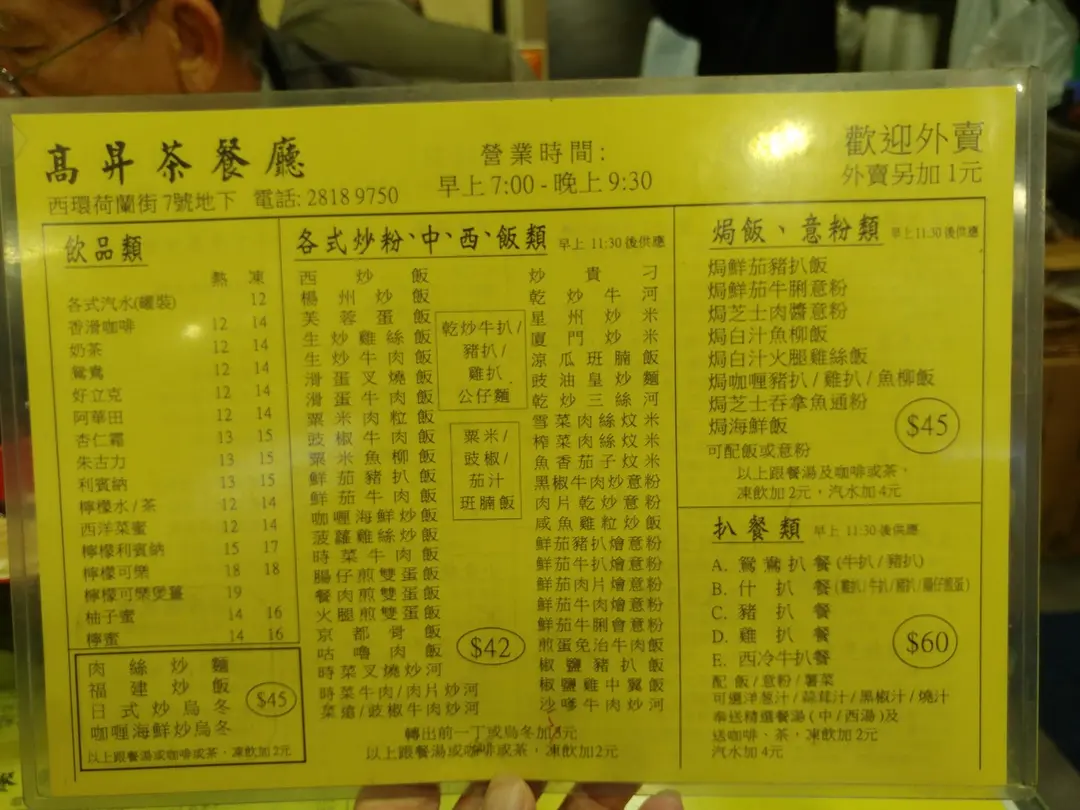 高昇茶餐廳
西環荷蘭街7號地下 電話: 2818 9750
營業時間:
早上 7:00 - 晚上 9:30
歡迎外賣
外賣另加 1元
飲品類
熱 凍
各式汽水(罐裝) 12
香滑咖啡 12 14
奶茶 12 14
鴛鴦 12 14
好立克 12 14
阿華田 12 14
杏仁霜 13 15
朱古力 13 15
利賓納 13 15
檸檬水/茶 12 14
西洋菜蜜 12 14
檸檬利賓納 15 17
檸檬可樂 18 18
檸檬可樂煲薑 19
柚子蜜 14 16
檸蜜 14 16
肉絲炒麵
福建炒飯
日式炒烏冬
咖喱海鮮炒烏冬
$45
以上跟餐湯或咖啡或茶，凍飲加2元
各式炒粉、中、西、飯類 早上 11:30後供應
西炒飯
楊州炒飯
芙蓉蛋飯
生炒雞絲飯
生炒牛肉飯
滑蛋叉燒飯
滑蛋牛肉飯
粟米肉粒飯
豉椒牛肉飯
粟米魚柳飯
鮮茄豬扒飯
鮮茄牛肉飯
咖喱海鮮炒飯
菠蘿雞絲炒飯
時菜牛肉飯
腸仔煎雙蛋飯
餐肉煎雙蛋飯
火腿煎雙蛋飯
京都骨飯
咕嚕肉飯
時菜叉燒炒河
時菜牛肉/肉片炒河
菜遠/豉椒牛肉炒河
乾炒牛扒/
豬扒/
雞扒
公仔麵
粟米/
豉椒/
茄汁
班腩飯
$42
炒貴刁
乾炒牛河
星州炒米
廈門炒米
涼瓜班腩飯
豉油皇炒麵
乾炒三絲河
雪菜肉絲炆米
榨菜肉絲炆米
魚香茄子炆米
黑椒牛肉炒意粉
肉片乾炒意粉
咸魚雞粒炒飯
鮮茄豬扒燴意粉
鮮茄牛扒燴意粉
鮮茄肉片燴意粉
鮮茄牛肉燴意粉
鮮茄牛脷會意粉
煎蛋免治牛肉飯
椒鹽豬扒飯
椒鹽雞中翼飯
沙嗲牛肉炒河
轉出前一丁或烏冬加3元
以上跟餐湯或咖啡或茶，凍飲加2元
焗飯、意粉類 早上11:30後供應
焗鮮茄豬扒飯
焗鮮茄牛脷意粉
焗芝士肉醬意粉
焗白汁魚柳飯
焗白汁火腿雞絲飯
焗咖喱豬扒/雞扒/魚柳飯
焗芝士吞拿魚通粉
焗海鮮飯
$45
可配飯或意粉
以上跟餐湯及咖啡或茶，
凍飲加2元，汽水加4元
扒餐類 早上 11:30後供應
A. 鴛鴦扒餐 (牛扒/豬扒)
B. 什扒餐 (雞扒/牛扒/豬扒/腸仔煎蛋)
C. 豬扒餐
D. 雞扒餐
E. 西冷牛扒餐
$60
配飯/意粉/薯菜
可選洋葱汁/蒜茸汁/黑椒汁/燒汁
奉送精選餐湯(中/西湯)及
送咖啡、茶，凍飲加2元
汽水加4元